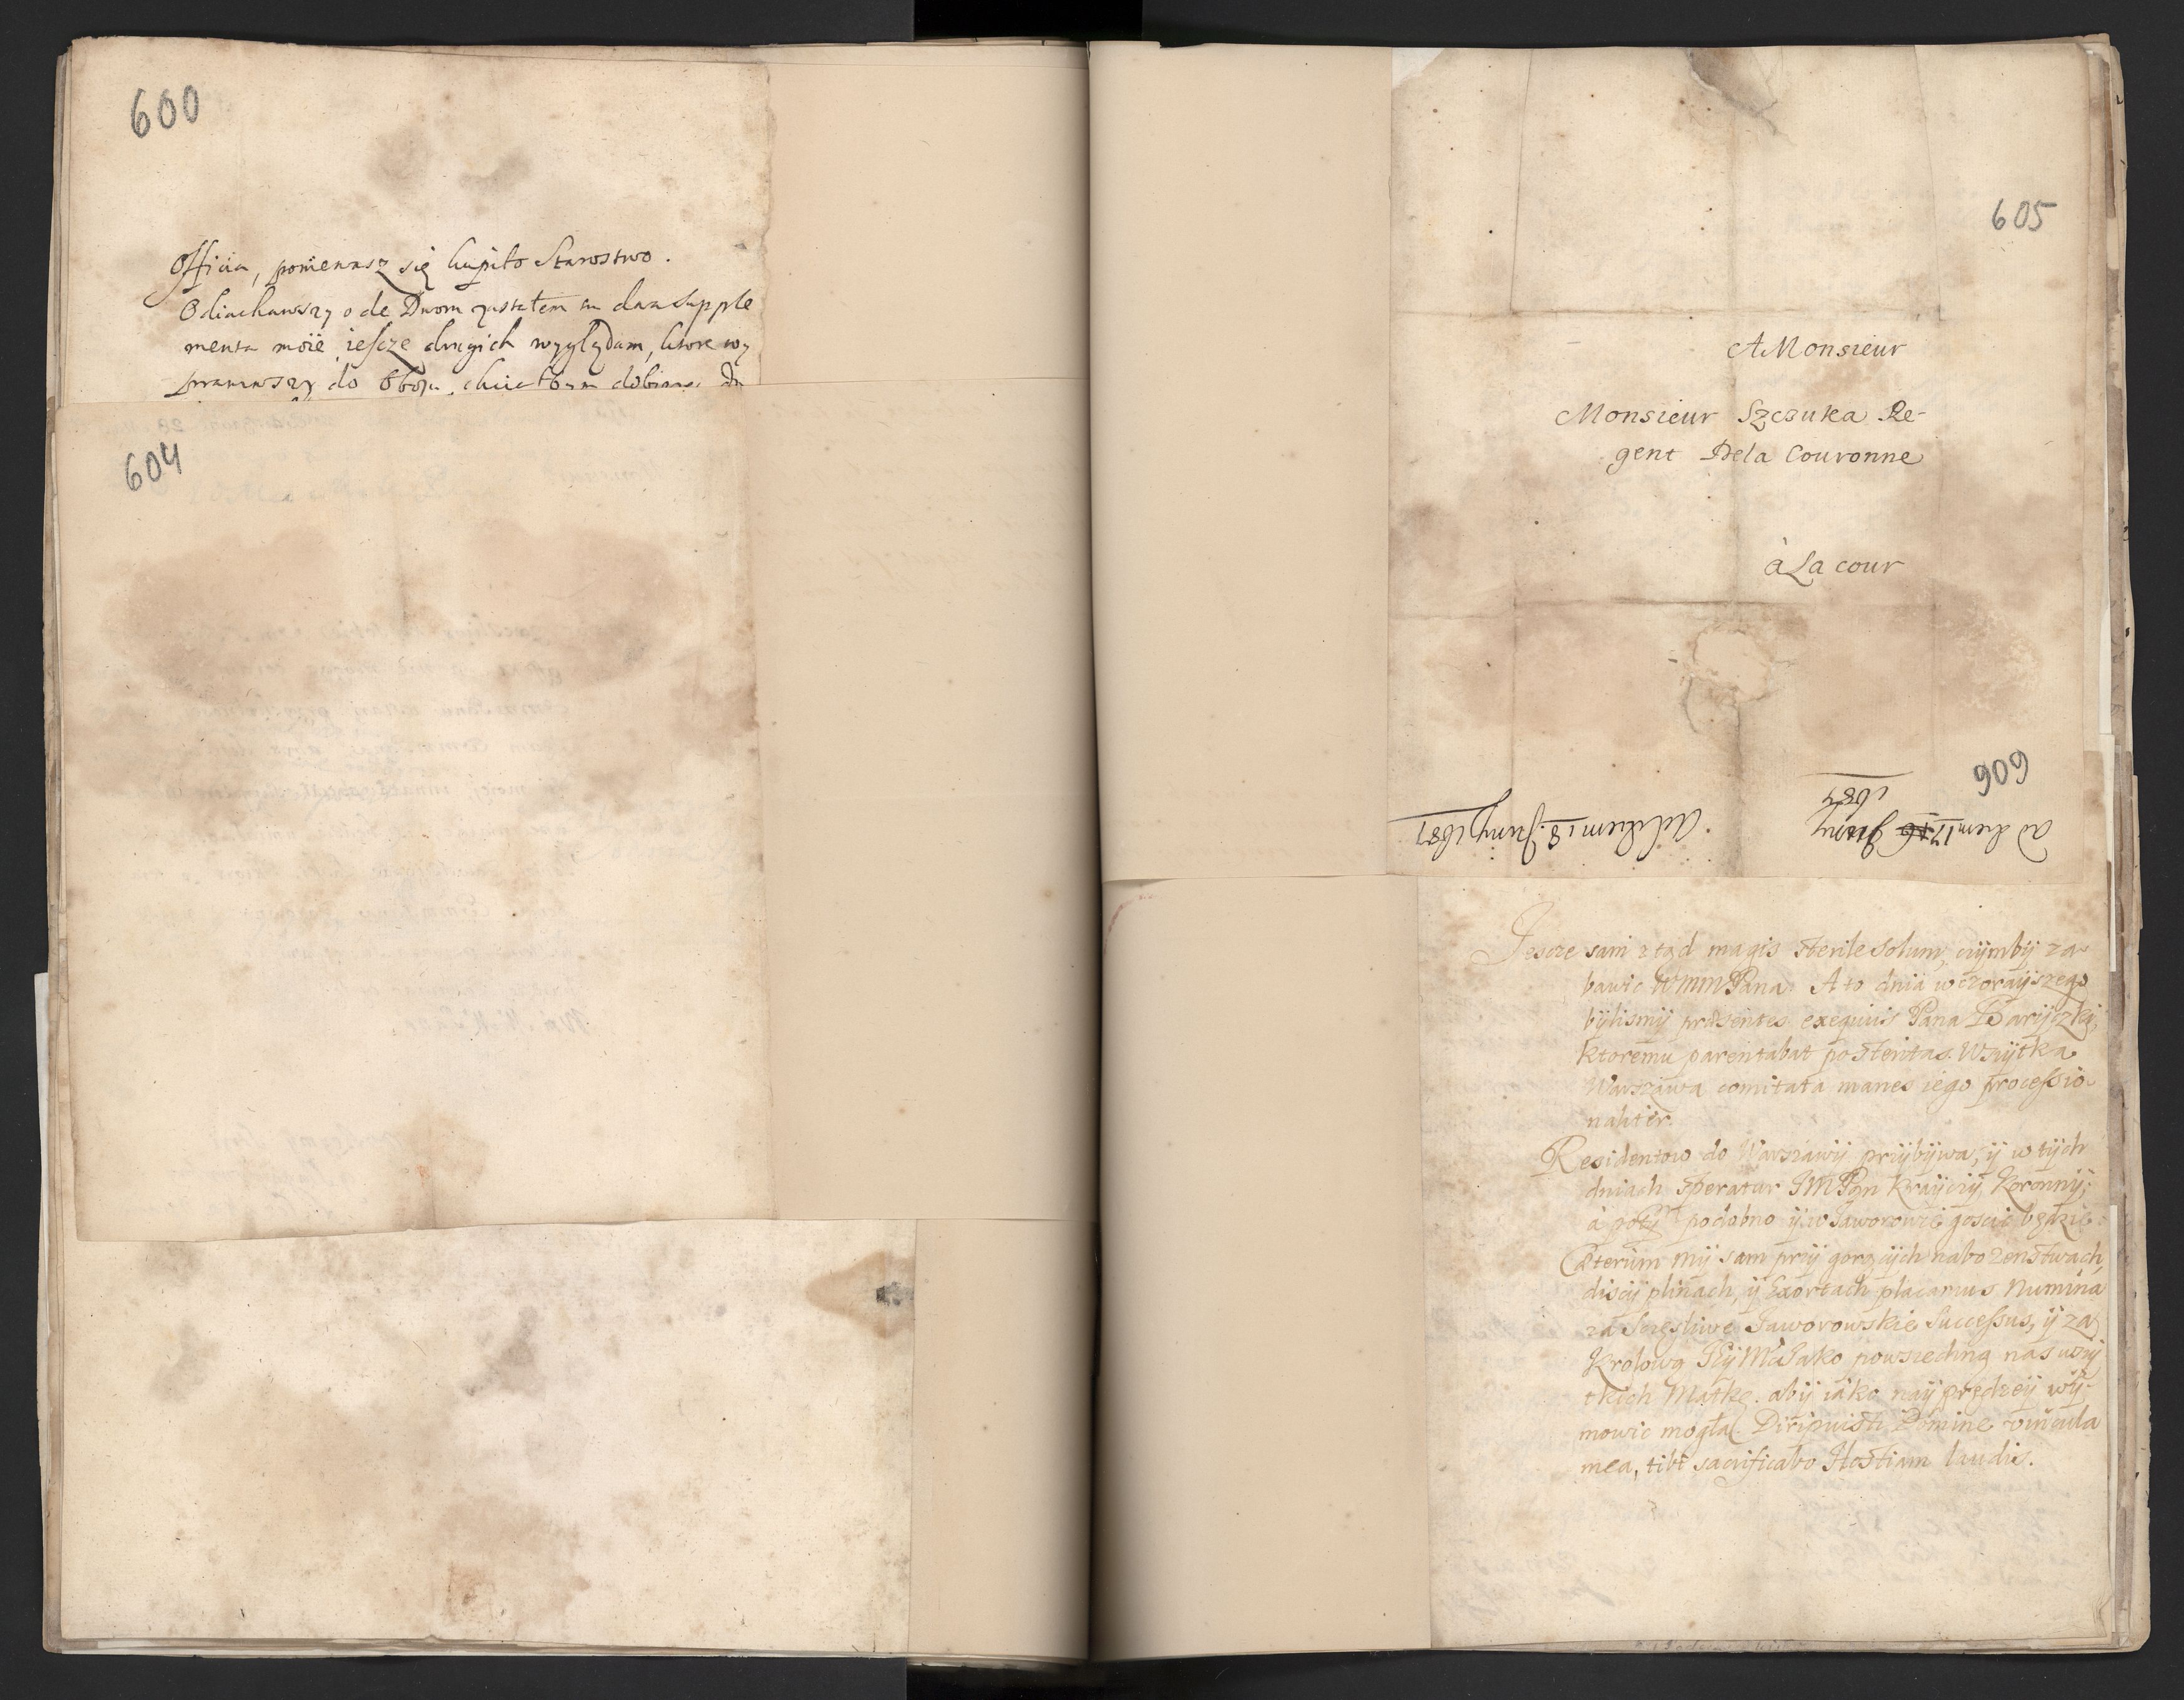 600
Officia, poniewasz się kupiło Starostwo.
Odiachawszy ode Dwom zastałem tu dwa supple
menta moie iescze drugich wyglądam, ktore wy
prawiwszy do Obozu, chciałbym
604
605
A Monsieur
Monsieur Szczuka Re-
gent Dela Couronne
à La cour
606
ad diem 17 Juny
1687
Ad diem 18. Juny 1687
Iescze sam ztąd magis sterile solum, czÿmbÿ za
bawic WMMPana. A to dnia wczoraÿszego
bÿlismÿ præsentes exequiis Pana Barÿczki,
ktoremu parentabat posteritas. Wszÿtka
Warszawa comitata manes iego processio
naliter.
Residentow do Warszawÿ przÿbÿwa, ÿ w tÿch
dniach speratur IMPan Kraÿczÿ Koronnÿ;
à potÿm podobno ÿ w Jaworowie goscic będzie
Cæterum mÿ sam przÿ gorącÿch nabozenstwach,
discÿplinach, ÿ Exortach placamus Numina
za sczęsliwe Jaworowskie Successus, ÿ za
Krolową JEÿMc Jako powszechną nas wszÿ
tkich Matkę. abÿ iako naÿprędzeÿ wÿ-
mowic mogła. Diripuisti Domine vincula
mea, tibi sacrificabo Hostiam laudis.